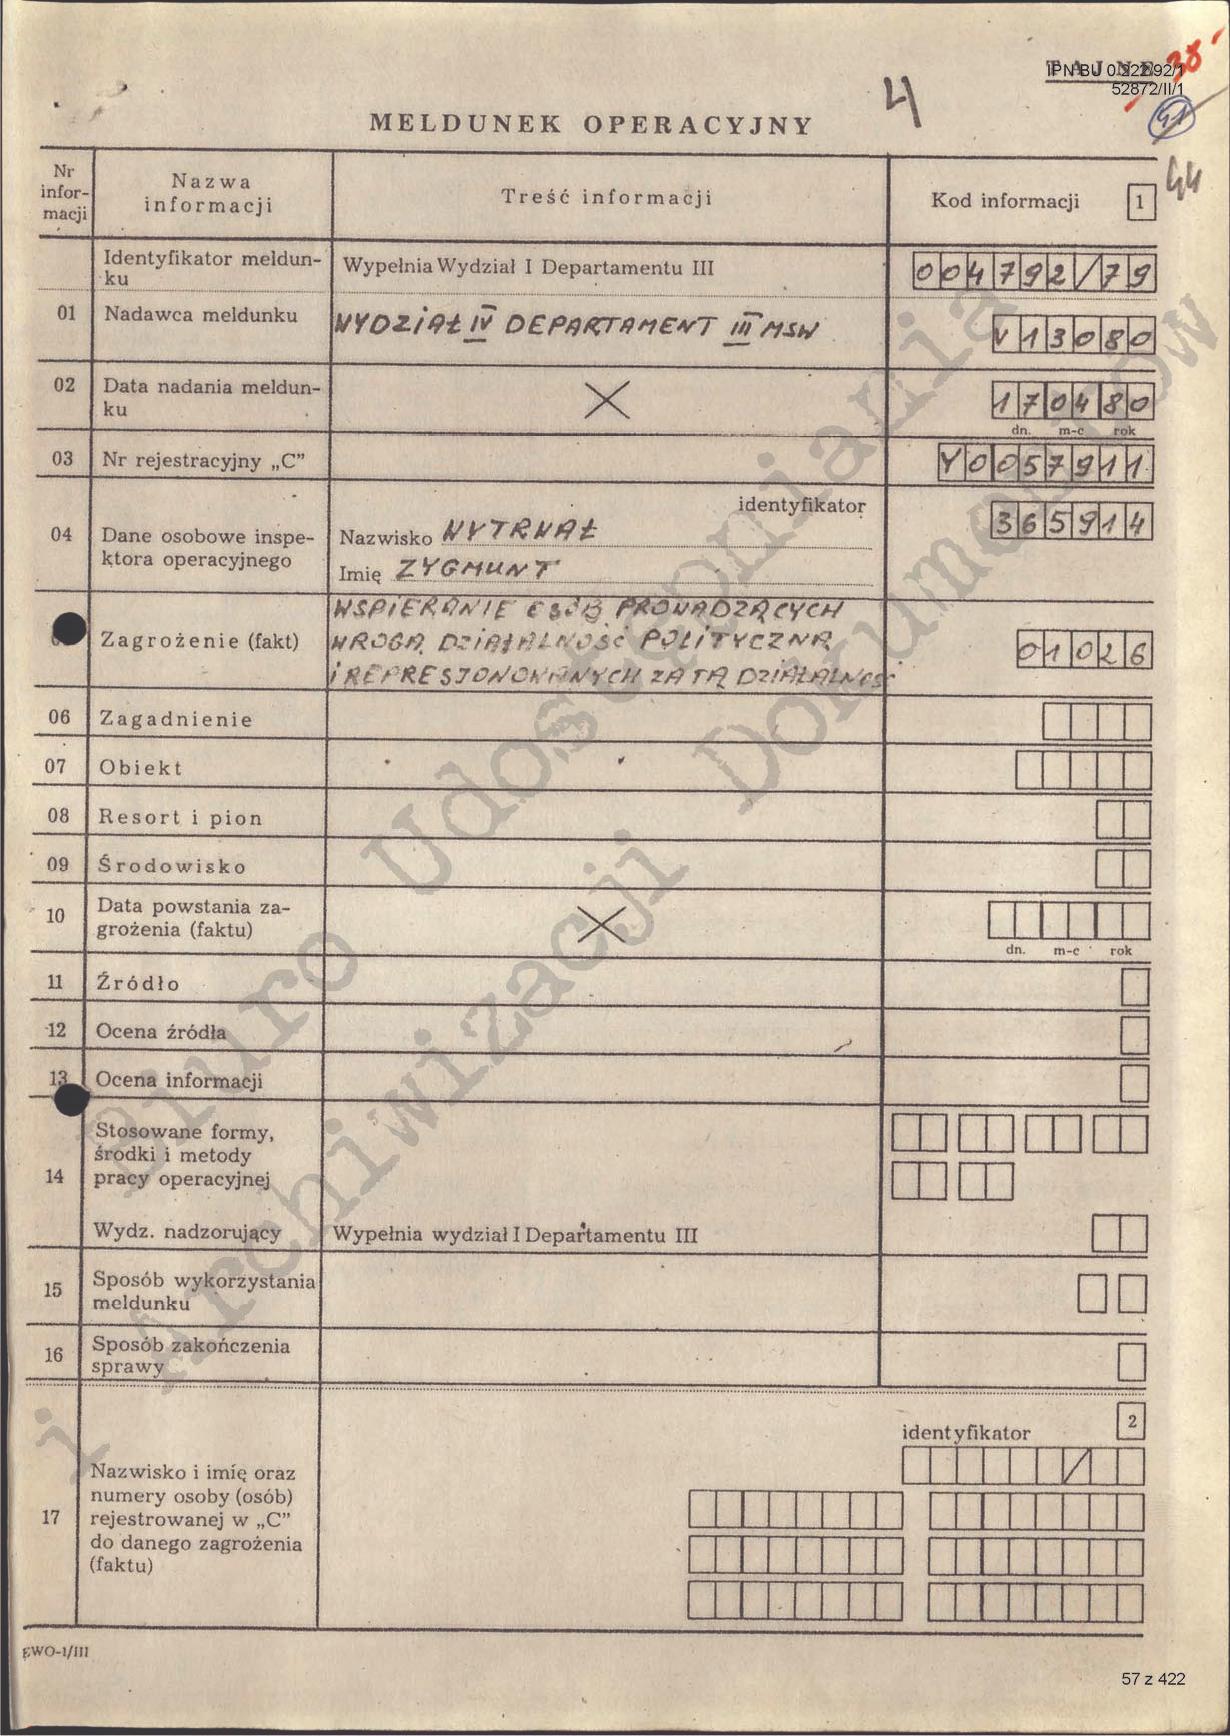 TAJNE
IPN BU 0 222 92/1
52872/II/1
38
41
4
MELDUNEK OPERACYJNY
44
Nr infor-macji
Nazwa informacji
Treść informacji
Kod informacji 1
Identyfikator meldun-
ku
Wypełnia Wydział I Departamentu III
004792/79
01 Nadawca meldunku
WYDZIAŁ IV DEPARTAMENT III MSW
V13080
02 Data nadania meldun-
ku
170480
dn. m-c rok
03 Nr rejestracyjny „C”
Y0057911
identyfikator
365914
04 Dane osobowe inspe-
ktora operacyjnego
Nazwisko WYTRWAŁ
Imię ZYGMUNT
Zagrożenie (fakt)
WSPIERANIE OSÓB PROWADZĄCYCH
WROGĄ DZIAŁALNOŚĆ POLITYCZNĄ
I REPRESJONOWANYCH ZA TĄ DZIAŁALNOŚĆ
01026
06 Zagadnienie
07 Obiekt
08 Resort i pion
09 Środowisko
10 Data powstania za-
grożenia (faktu)
dn. m-c rok
11 Źródło
12 Ocena źródła
13 Ocena informacji
14 Stosowane formy,
środki i metody
pracy operacyjnej
Wydz. nadzorujący
Wypełnia wydział I Departamentu III
15 Sposób wykorzystania
meldunku
16 Sposób zakończenia
sprawy
2
identyfikator
/
17 Nazwisko i imię oraz
numery osoby (osób)
rejestrowanej w „C”
do danego zagrożenia
(faktu)
EWO-1/III
57 z 422
Biuro Udostępniania
i Archiwizacji Dokumentów